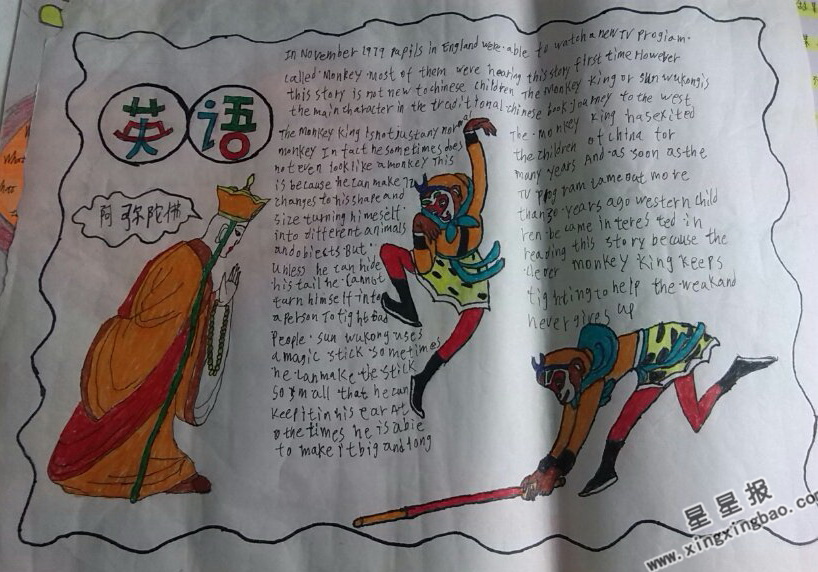 英语
阿弥陀佛
In November 1979 pupils in England were able to watch a new TV program.
called Monkey most of them were hearing this story first time However
this story is not new to chinese children The monkey king or sun wukong is
the main character in the traditional chinese book Journey to the west
The monkey King is not just any normal
monkey In fact he sometimes does
not even look like a monkey This
is because he can make 72
changes to his shape and
size turning himself
into different animals
and obiests But
Unless he can hide
his tail he Cannot
turn himself into
a person To fight bad
People. sun wukong uses
a magic stick sometimes
he can make the stick
so small that he can
keep it in his ear At
o the times he is abie
to make it big and long
The monkey King has exited
the children of china for
many years And as soon as the
TV program came out more
than 30 years ago western child
ren be came interes ted in
reading this story because the
clever monkey king keeps
fighting to help the weak and
never gives up
星星报
www.xingxingbao.com